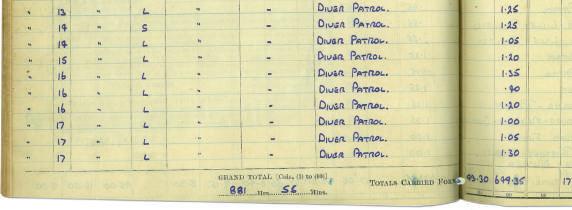 " 13 " L " - DIVER PATROL. 1·25
" 14 " S " - DIVER PATROL. 1·25
" 14 " L " - DIVER PATROL. 1·05
" 15 " L " - DIVER PATROL. 1·20
" 16 " L " - DIVER PATROL. 1·35
" 16 " L " - DIVER PATROL. ·40
" 16 " L " - DIVER PATROL. 1·20
" 17 " L " - DIVER PATROL. 1·00
" 17 " L " - DIVER PATROL. 1·05
" 17 " L " - DIVER PATROL. 1·30
GRAND TOTAL [Cols. (1) to (10)]
881 Hrs. 55 Mins.
TOTALS CARRIED FORW 699·35 17